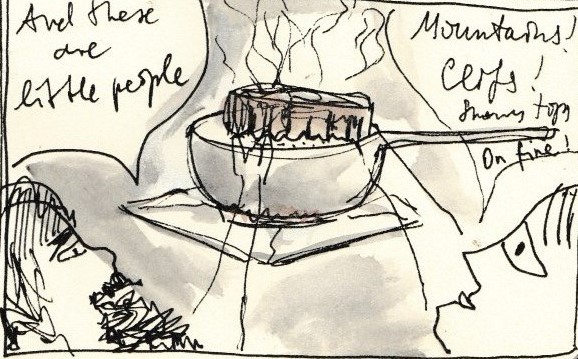 And these
are
little people
Mountains!
Clifs!
Snowy tops
On fire!